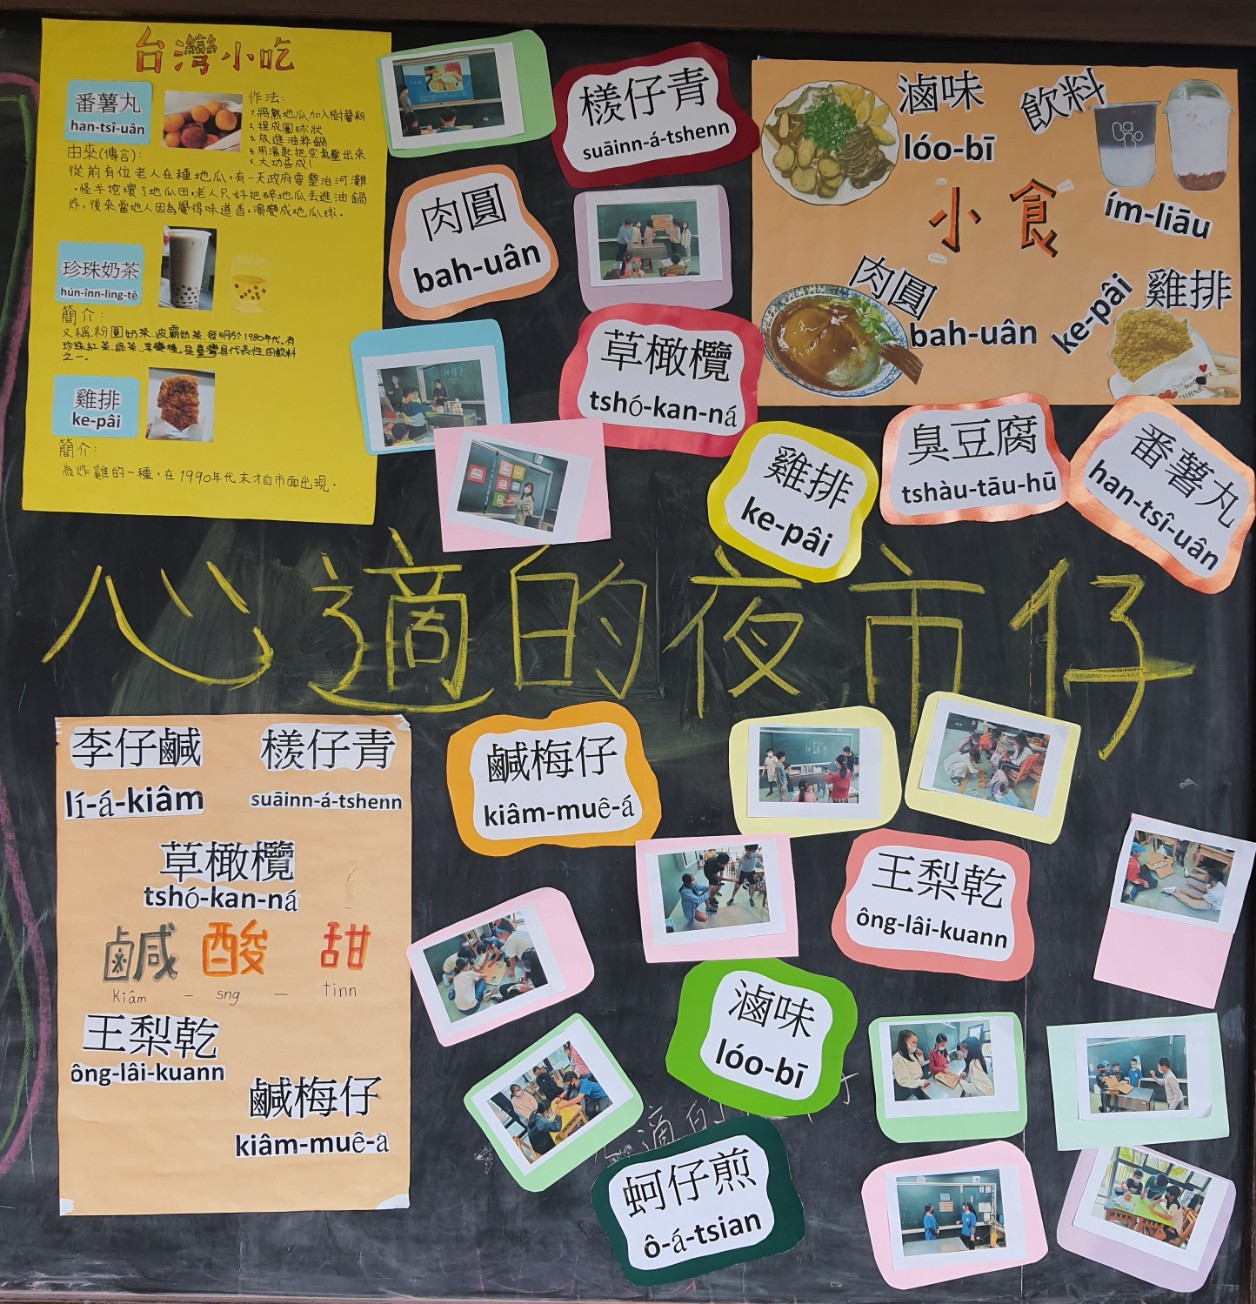 台灣小吃
番薯丸
han-tsî-uân
作法:
1.將熟地瓜加入樹薯粉
2.捏成圓球狀
3.放進油炸鍋
4.用湯匙把空氣壓出來
5.大功告成!
由來(傳言):
從前有位老人在種地瓜,有一天政府要整治河灘
,怪手挖壞了地瓜田,老人只好把碎地瓜丟進油鍋
炸,後來當地人因為覺得味道香,演變成地瓜球。
珍珠奶茶
hún-înn-ling-tê
簡介:
又稱粉圓奶茶、波霸奶茶,發明於1980年代。有
珍珠紅茶、綠茶、等變種。是臺灣具代表性的飲料
之一。
雞排
ke-pâi
簡介:
為炸雞的一種,在1990年代末才自市面出現。
檨仔青
suāinn-á-tshenn
肉圓
bah-uân
草橄欖
tshó-kan-ná
滷味
lóo-bī
飲料
ím-liāu
小食
肉圓
bah-uân
雞排
ke-pâi
雞排
ke-pâi
臭豆腐
tshàu-tāu-hū
番薯丸
han-tsî-uân
心適的夜市仔
李仔鹹
lí-á-kiâm
檨仔青
suāinn-á-tshenn
草橄欖
tshó-kan-ná
鹹酸甜
kiâm - sng - tinn
王梨乾
ông-lâi-kuann
鹹梅仔
kiâm-muê-á
鹹梅仔
kiâm-muê-á
王梨乾
ông-lâi-kuann
滷味
lóo-bī
蚵仔煎
ô-á-tsian